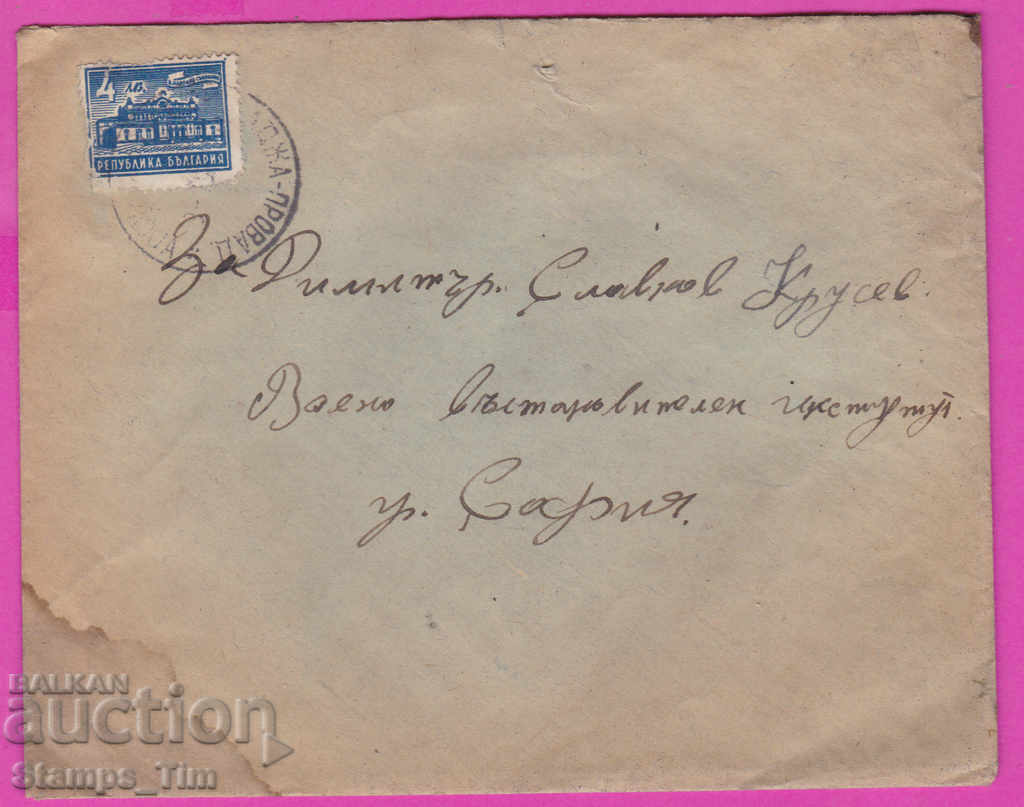 4 лв.
РЕПУБЛИКА БЪЛГАРИЯ
ДЖА-ПРОВАД.
За Димитър. Славков Крусев.
Воено възстановителен
гр. София.
BALKAN
auction
Stamps_Tim